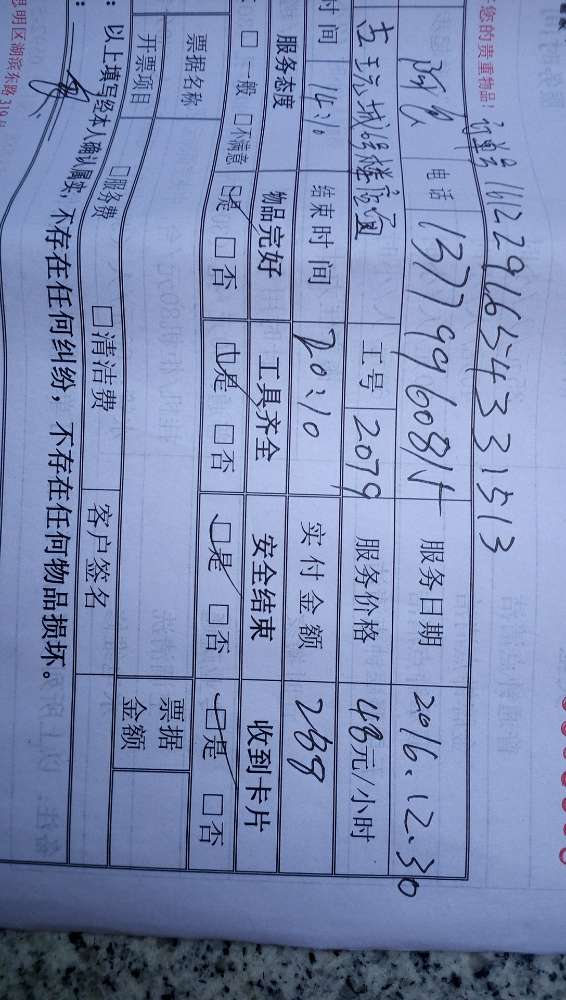 您的贵重物品！
订单号 16122916543331513
电话 13779960815 服务日期 2016.12.30
工号 2079 服务价格 48元/小时
时间 14:10 结束时间 20:10 实付金额 288
服务态度 物品完好 工具齐全 安全结束 收到卡片
□ 一般 □不满意 □是 □否 □是 □否 □是 □否 □是 □否
票据名称 票据金额
开票项目 □服务费 □清洁费
：以上填写经本人确认属实，不存在任何纠纷，不存在任何物品损坏。
客户签名
思明区湖滨东路319号